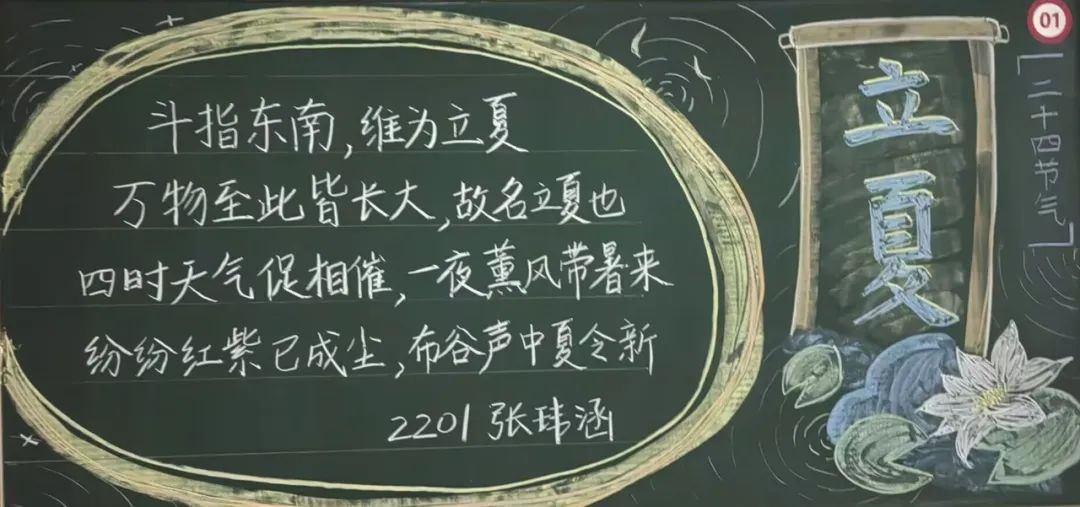 斗指东南,维为立夏
万物至此皆长大,故名立夏也
四时天气促相催,一夜薰风带暑来
纷纷红紫已成尘,布谷声中夏令新
2201 张玮涵
立夏
「二十四节气」
01